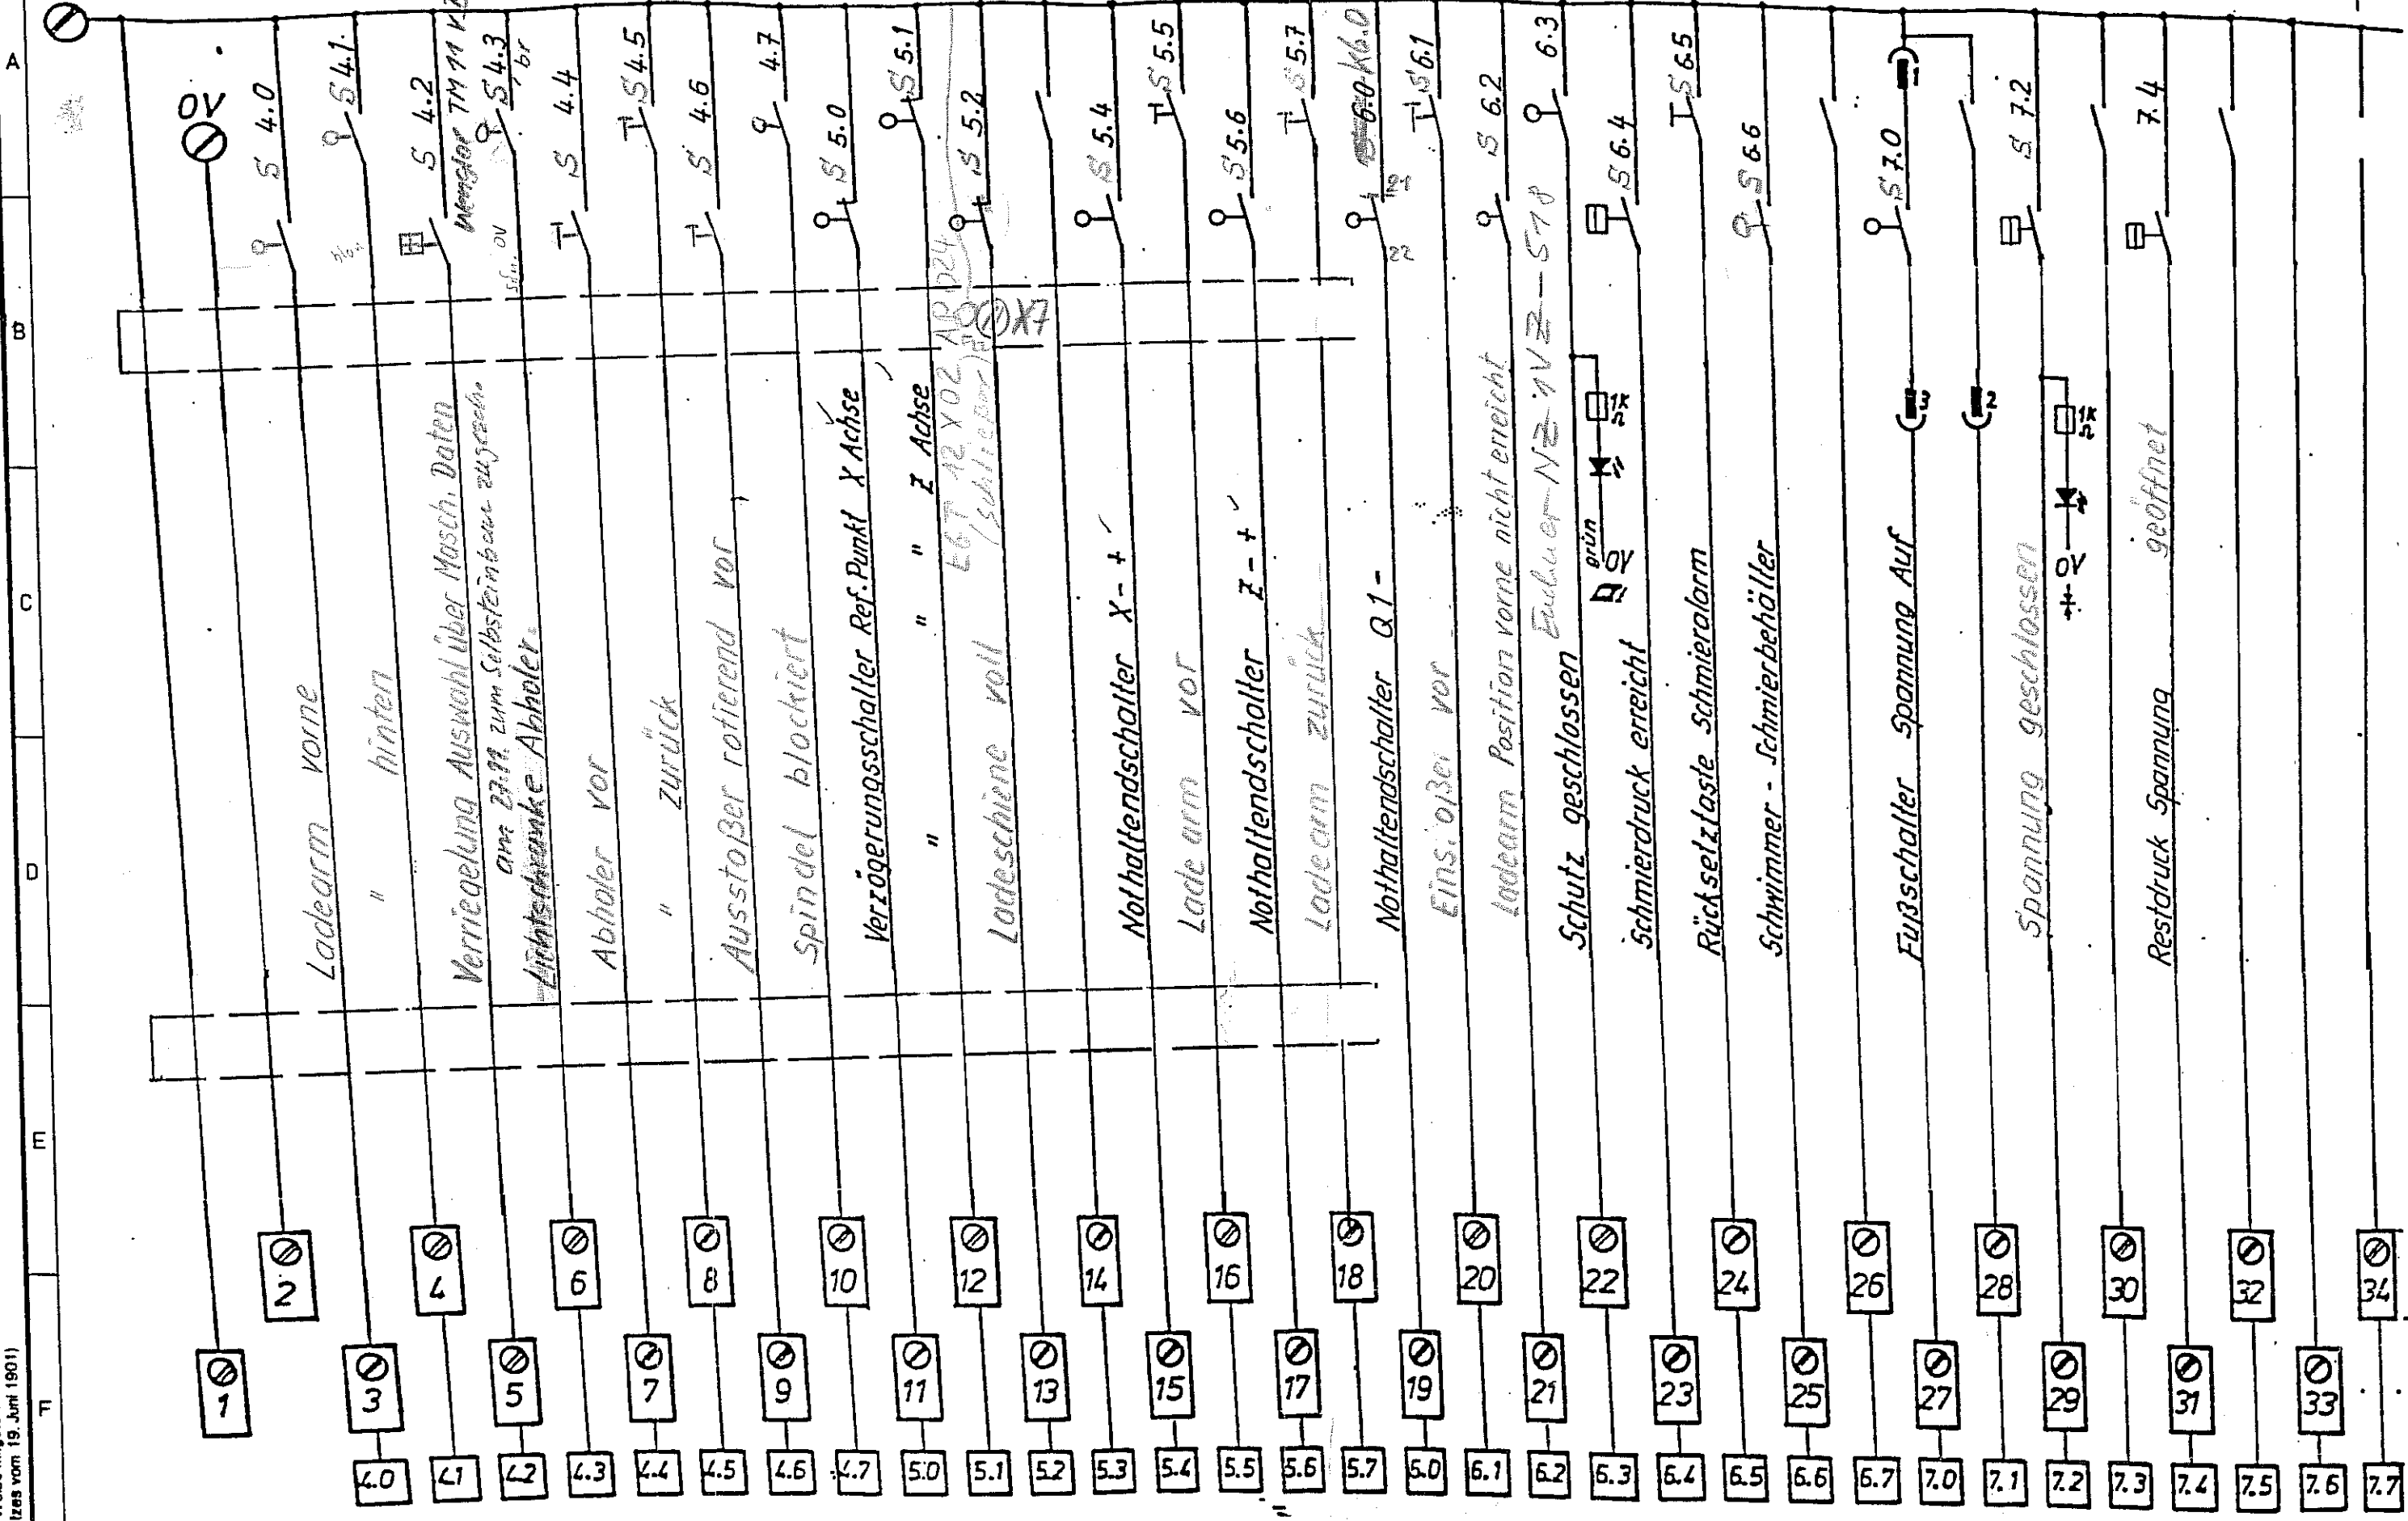 A
B
C
D
E
F
0V
S 4.0
S 4.1
S 4.2
S 4.3
br
S 4.4
S 4.5
S 4.6
4.7
S 5.0
S 5.1
S 5.2
S 5.4
S 5.5
S 5.6
S 5.7
K6.0
S 6.1
S 6.2
6.3
S 6.4
S 6.5
S 6.6
S 7.0
1
S 7.2
7.4
0V
21
22
X7
3
2
1K
Ω
grün
0V
1K
Ω
0V
Ladearm vorne
" hinten
Verriegelung Auswahl über Masch. Daten
am 27.11. zum Selbsteinbau zugesch.
Lichtschranke Abholer
Abholer vor
" zurück
Ausstoßer rotierend vor
Spindel blockiert
Verzögerungsschalter Ref.Punkt X Achse
" " " Z Achse
Ladeschiene voll
Nothaltendschalter X - +
Ladearm vor
Nothaltendschalter Z - +
Ladearm zurück
Nothaltendschalter Q1 -
vor
Ladearm Position vorne nicht erreicht
Schutz geschlossen
Schmierdruck erreicht
Rücksetztaste Schmieralarm
Schwimmer - Schmierbehälter
Fußschalter Spannung Auf
Spannung geschlossen
Restdruck Spannung geöffnet
2 4 6 8 10 12 14 16 18 20 22 24 26 28 30 32 34
1 3 5 7 9 11 13 15 17 19 21 23 25 27 29 31 33
4.0 4.1 4.2 4.3 4.4 4.5 4.6 4.7 5.0 5.1 5.2 5.3 5.4 5.5 5.6 5.7 6.0 6.1 6.2 6.3 6.4 6.5 6.6 6.7 7.0 7.1 7.2 7.3 7.4 7.5 7.6 7.7
vom 19. Juni 1901)